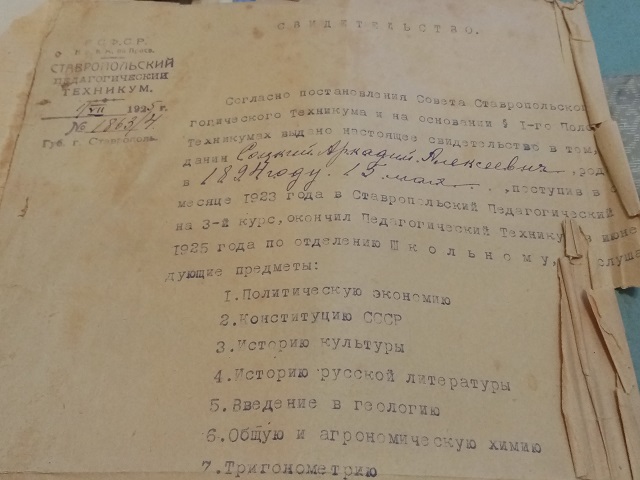 СВИДЕТЕЛЬСТВО.
Р.С.Ф.С.Р.
СТАВРОПОЛЬСКИЙ
ПЕДАГОГИЧЕСКИЙ
ТЕХНИКУМ.
VII 1925 г.
№ 1863/7
Губ. г. Ставрополь.
Согласно постановления Совета Ставропольской
гогического Техникума и на основании § 1-го Поло
Техникумах выдано настоящее свидетельство в том,
данин Соцкий Аркадий Алексеевич, род
в году. 15 мая, поступив в
месяце 1923 года в Ставропольский Педагогический
на 3-й курс, окончил Педагогический Технику в июне
1925 года по отделению Школьному, слуша
дующие предметы:
1.Политическую экономию
2.Конституцию СССР
3.Историю культуры
4.Историю русской литературы
5.Введение в геологию
6.Общую и агрономическую химию
7.Тригонометрию